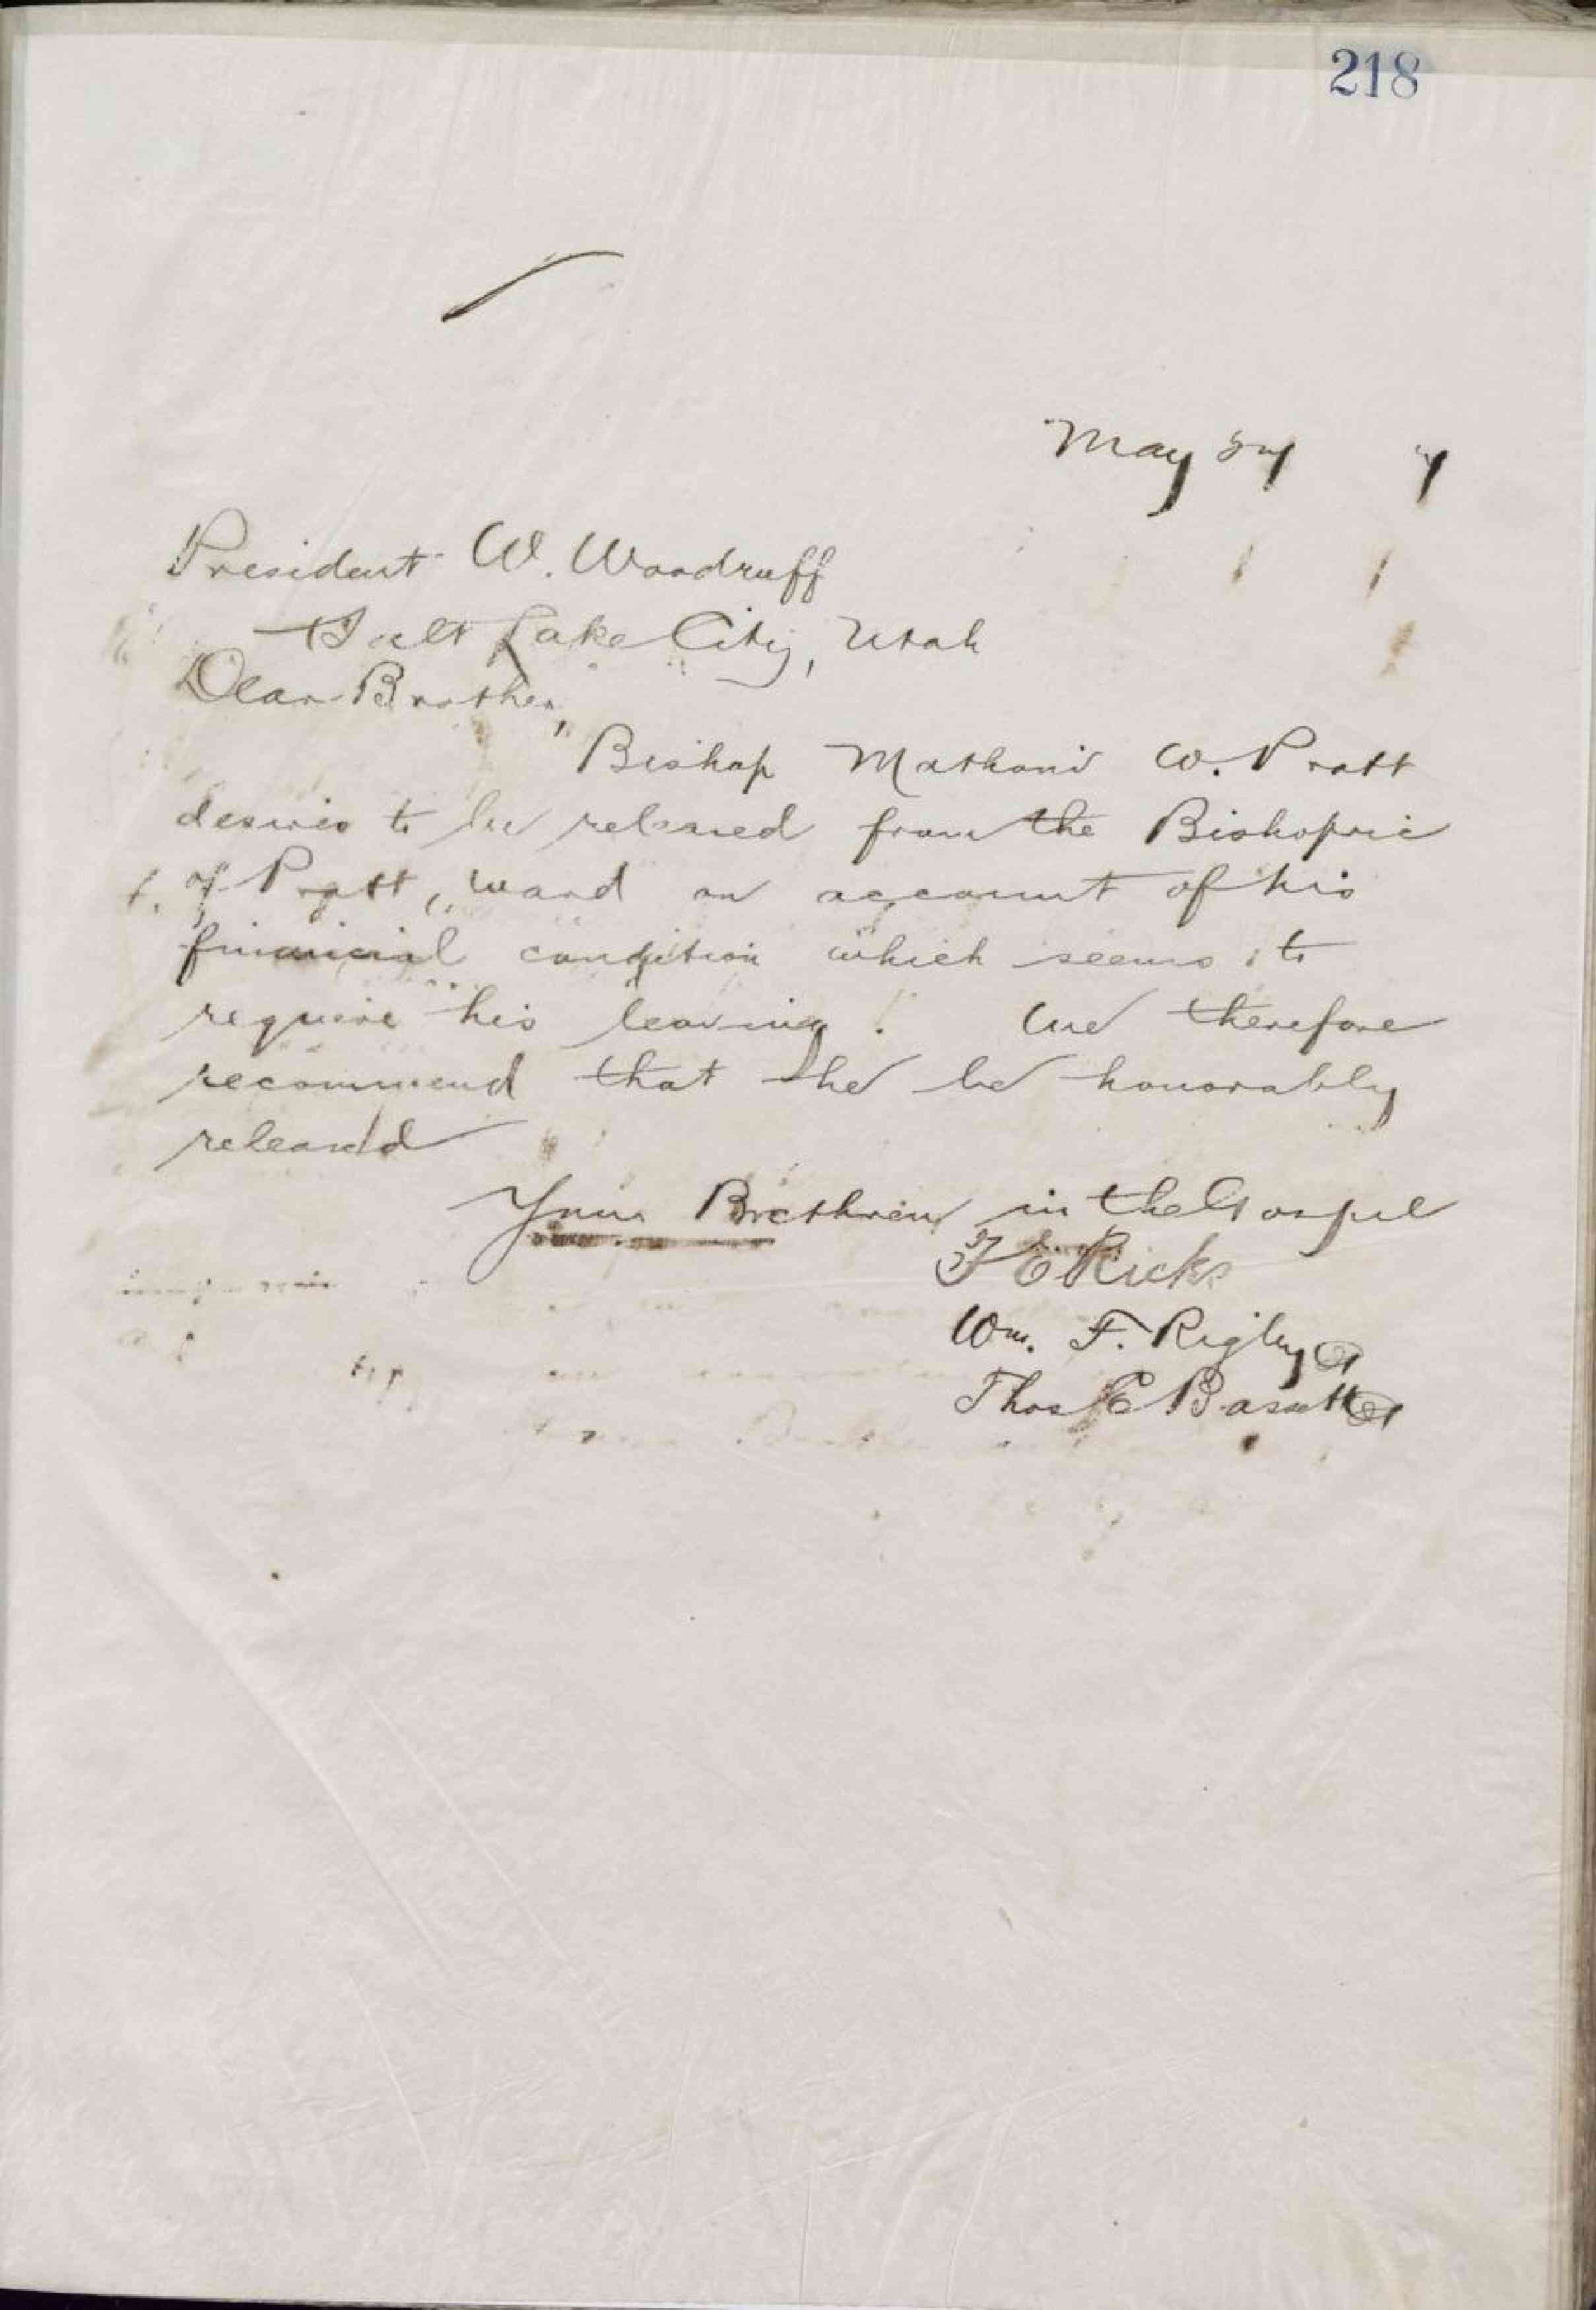 218
May 7
President W. Woodruff
Salt Lake City, Utah
Dear Brother,
Bishop Mathoni W. Pratt
desires to be released from the Bishopric
of Pratt, ward on account of his
financial condition which seems to
require his leaving. We therefore
recommend that he be honorably
released
Your Brethren in the Gospel
T E Ricks
Wm. F. Rigby
Thos E Bassett